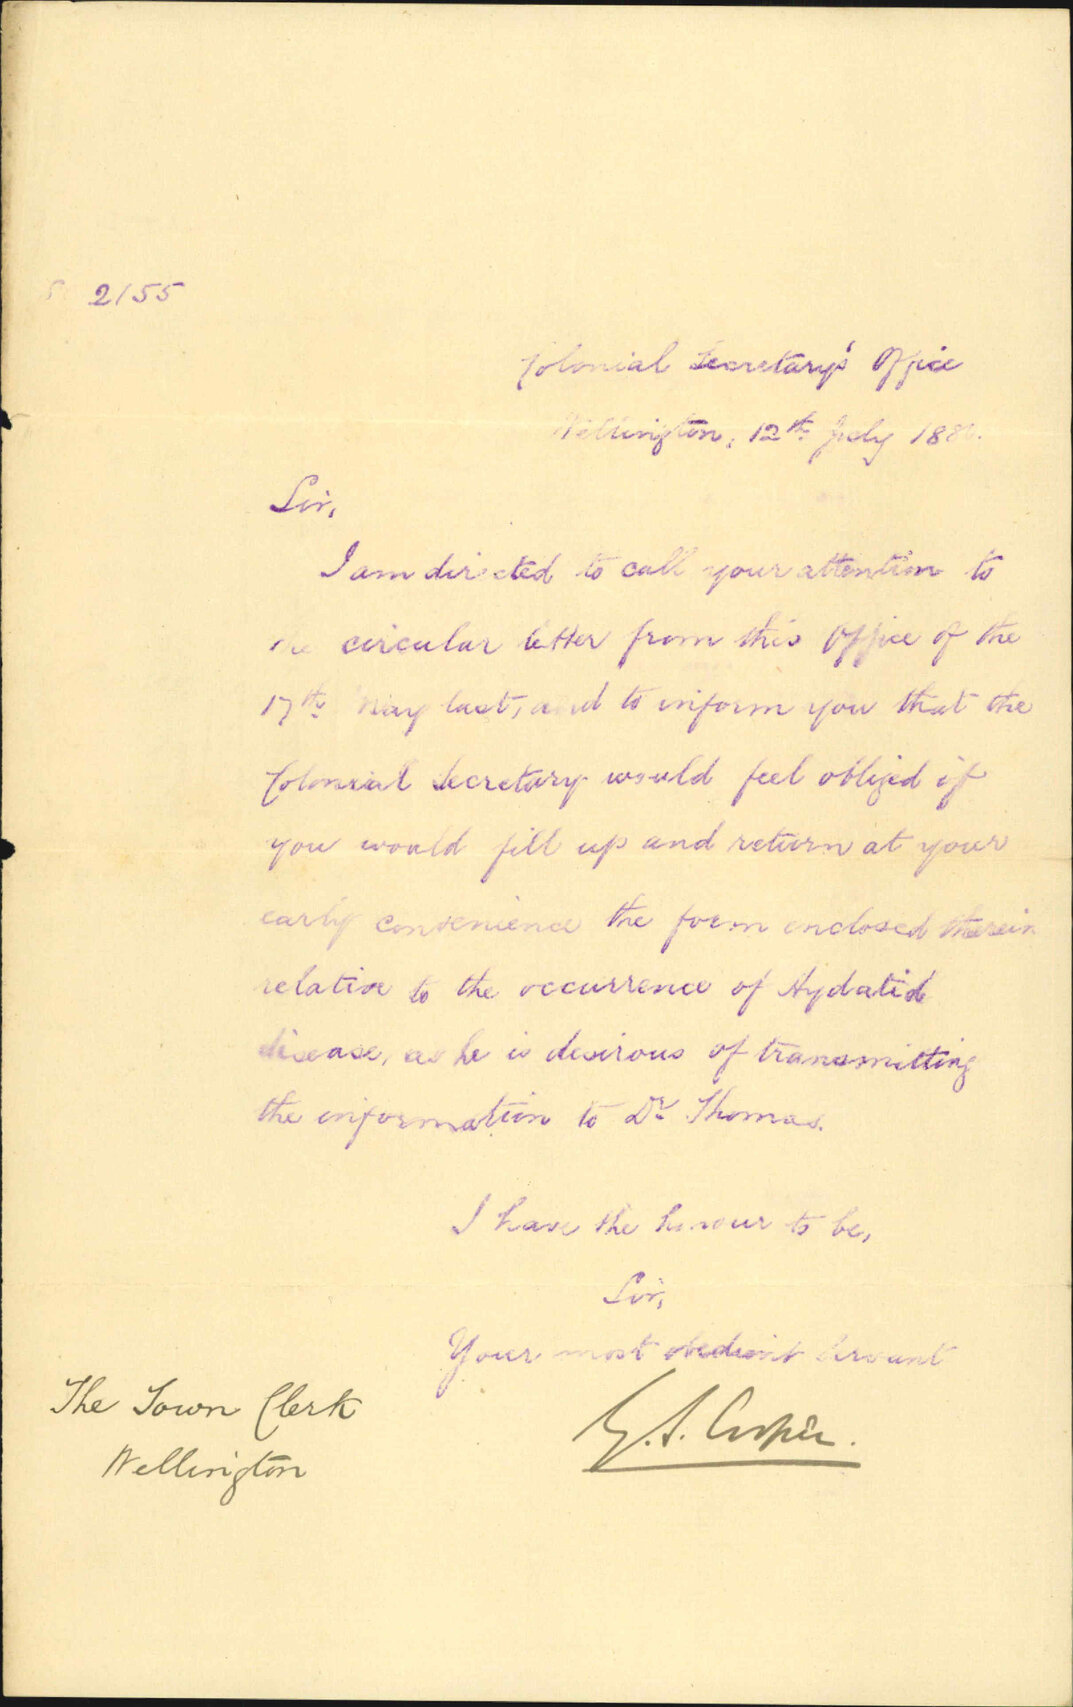 2155
Colonial Secretary's Office
Wellington, 12th July 188
Sir,
I am directed to call your attention to
the circular letter from this Office of the
17th May last, and to inform you that the
Colonial Secretary would feel obliged if
you would fill up and return at your
early convenience the form enclosed therein
relative to the occurrence of Hydatid
disease, as he is desirous of transmitting
the information to Dr Thomas.
I have the honour to be,
Sir,
Your most obedient Servant
G. S. Cooper.
The Town Clerk
Wellington